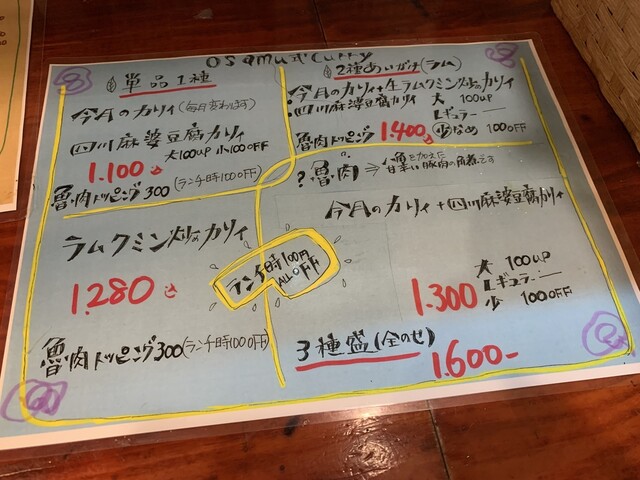 osamu's Curry
単品1種
今月のカリィ(毎月変わります)
四川麻婆豆腐カリィ
大100up 小100OFF
1.100込
魯肉トッピング300(ランチ時100OFF)
ラムクミン炒めカリィ
1.280込
魯肉トッピング300(ランチ時100OFF)
ランチ時100円
ALL OFF
2種あいがけ(ラム)
今月のカリィ+生ラムクミン炒めカリィ
四川麻婆豆腐カリィ 大 100up
レギュラー
少なめ 100OFF
魯肉トッピング 1400込
?魯肉⇒八角を加えた
甘辛い豚肉の角煮です
今月のカリィ+四川麻婆豆腐カリィ
1.300込
大 100up
レギュラー
少 100OFF
3種盛(全のせ)
1.600-